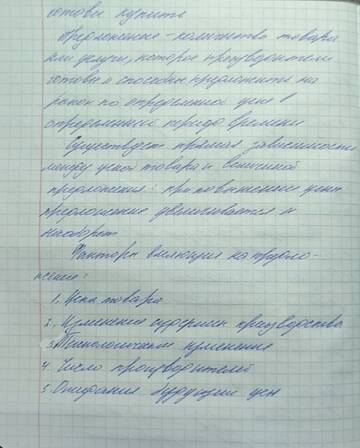 готовы купить
Предложение - количество товара
или услуги, которые производители
готовы и способны предложить на
рынок по определенной цене в
определенный период времени
Существует прямая зависимость
между ценой товара и величиной
предложения: при повышении цены
предложение увеличивается и
наоборот
Факторы влияющие на предло-
жение:
1. Цена товара
2. Изменения издержки производства
3. Технологические изменения
4. Число производителей
5. Ожидания будущих цен